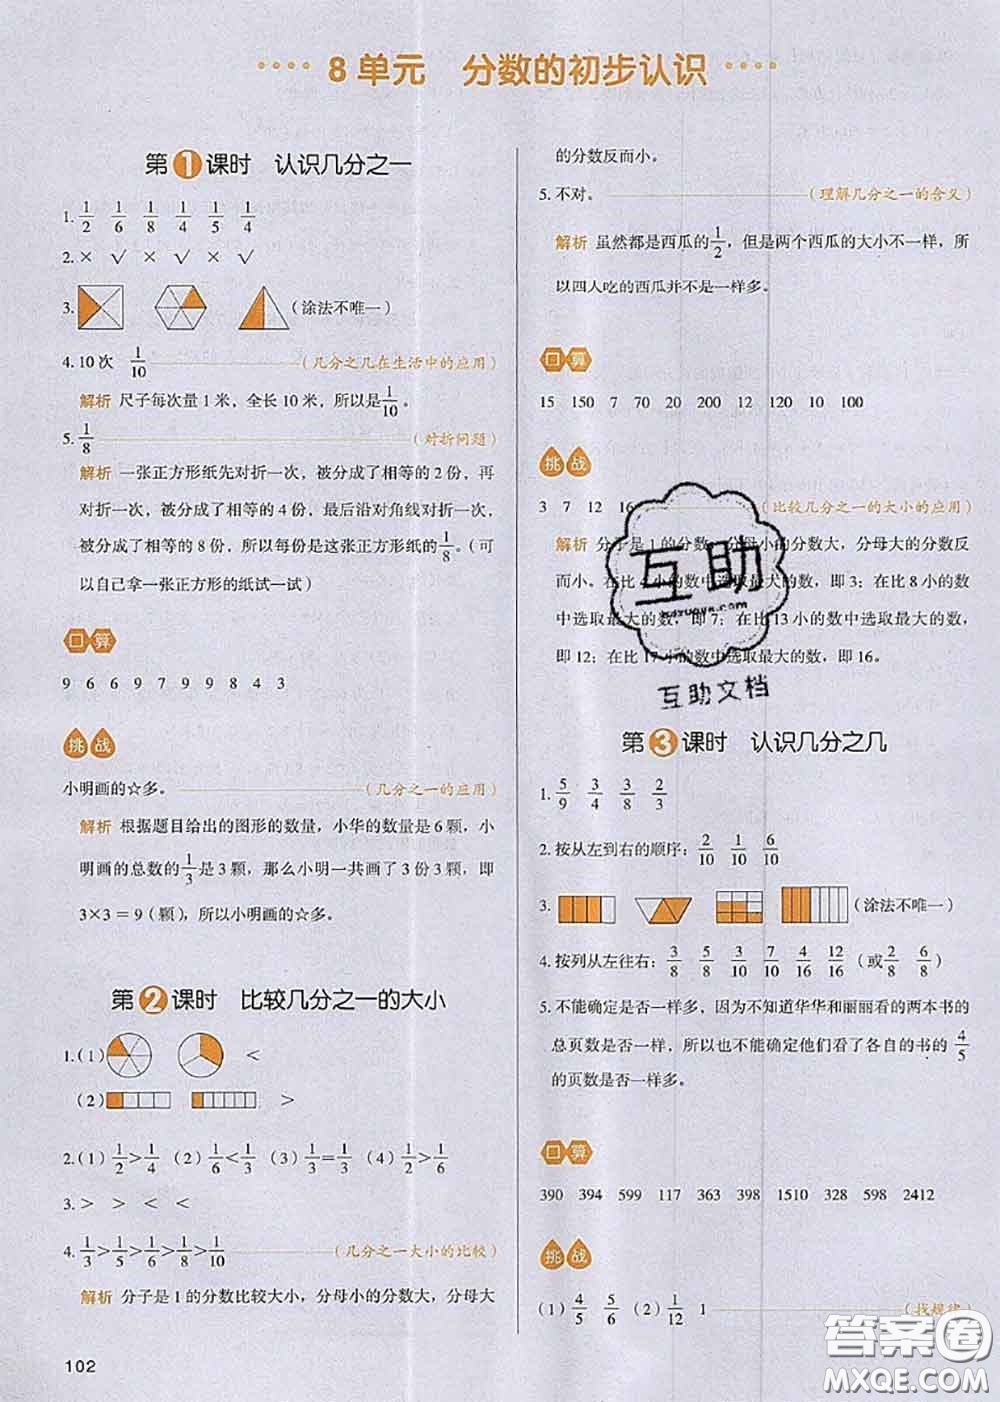 8 单元 分数的初步认识
第1课时 认识几分之一
1. 1/2 1/6 1/8 1/4 1/5 1/4
2. × √ × √ × √
3. (涂法不唯一)
4. 10次 1/10 (几分之几在生活中的应用)
解析 尺子每次量1米，全长10米，所以是1/10。
5. 1/8 (对折问题)
解析 一张正方形纸先对折一次，被分成了相等的2份，再
对折一次，被分成了相等的4份，最后沿对角线对折一次，
被分成了相等的8份，所以每份是这张正方形纸的1/8。(可
以自己拿一张正方形的纸试一试)
口算
9 6 6 9 7 9 9 8 4 3
挑战
小明画的☆多。 (几分之一的应用)
解析 根据题目给出的图形的数量，小华的数量是6颗，小
明画的总数的1/3是3颗，那么小明一共画了3份3颗，即
3×3=9(颗)，所以小明画的☆多。
第2课时 比较几分之一的大小
1.(1) <
(2) >
2.(1) 1/2>1/4 (2) 1/6<1/3 (3) 1/3=1/3 (4) 1/2>1/6
3. > > < <
4. 1/3>1/5>1/6>1/8>1/10 (几分之一大小的比较)
解析 分子是1的分数比较大小，分母小的分数大，分母大
102
的分数反而小。
5. 不对。 (理解几分之一的含义)
解析 虽然都是西瓜的1/2，但是两个西瓜的大小不一样，所
以四人吃的西瓜并不是一样多。
口算
15 150 7 70 20 200 12 120 10 100
挑战
3 7 12 16 (比较几分之一的大小的应用)
解析 分子是1的分数，分母小的分数大，分母大的分数反
而小。在比4小的数中选取最大的数，即3；在比8小的数
中选取最大的数，即7；在比13小的数中选取最大的数，
即12；在比17小的数中选取最大的数，即16。
互助
互助文档
第3课时 认识几分之几
1. 5/9 3/4 3/8 2/3
2. 按从左到右的顺序：2/10 1/10 6/10
3. (涂法不唯一)
4. 按列从左往右：3/8 5/8 3/10 7/10 4/16 12/16 (或2/8 6/8)
5. 不能确定是否一样多，因为不知道华华和丽丽看的两本书的
总页数是否一样，所以也不能确定他们看了各自的书的4/5
的页数是否一样多。
口算
390 394 599 117 363 398 1510 328 598 2412
挑战
(1) 4/5 5/6 (2) 1/12 1 (找规律)
答案圈
MXQE.COM